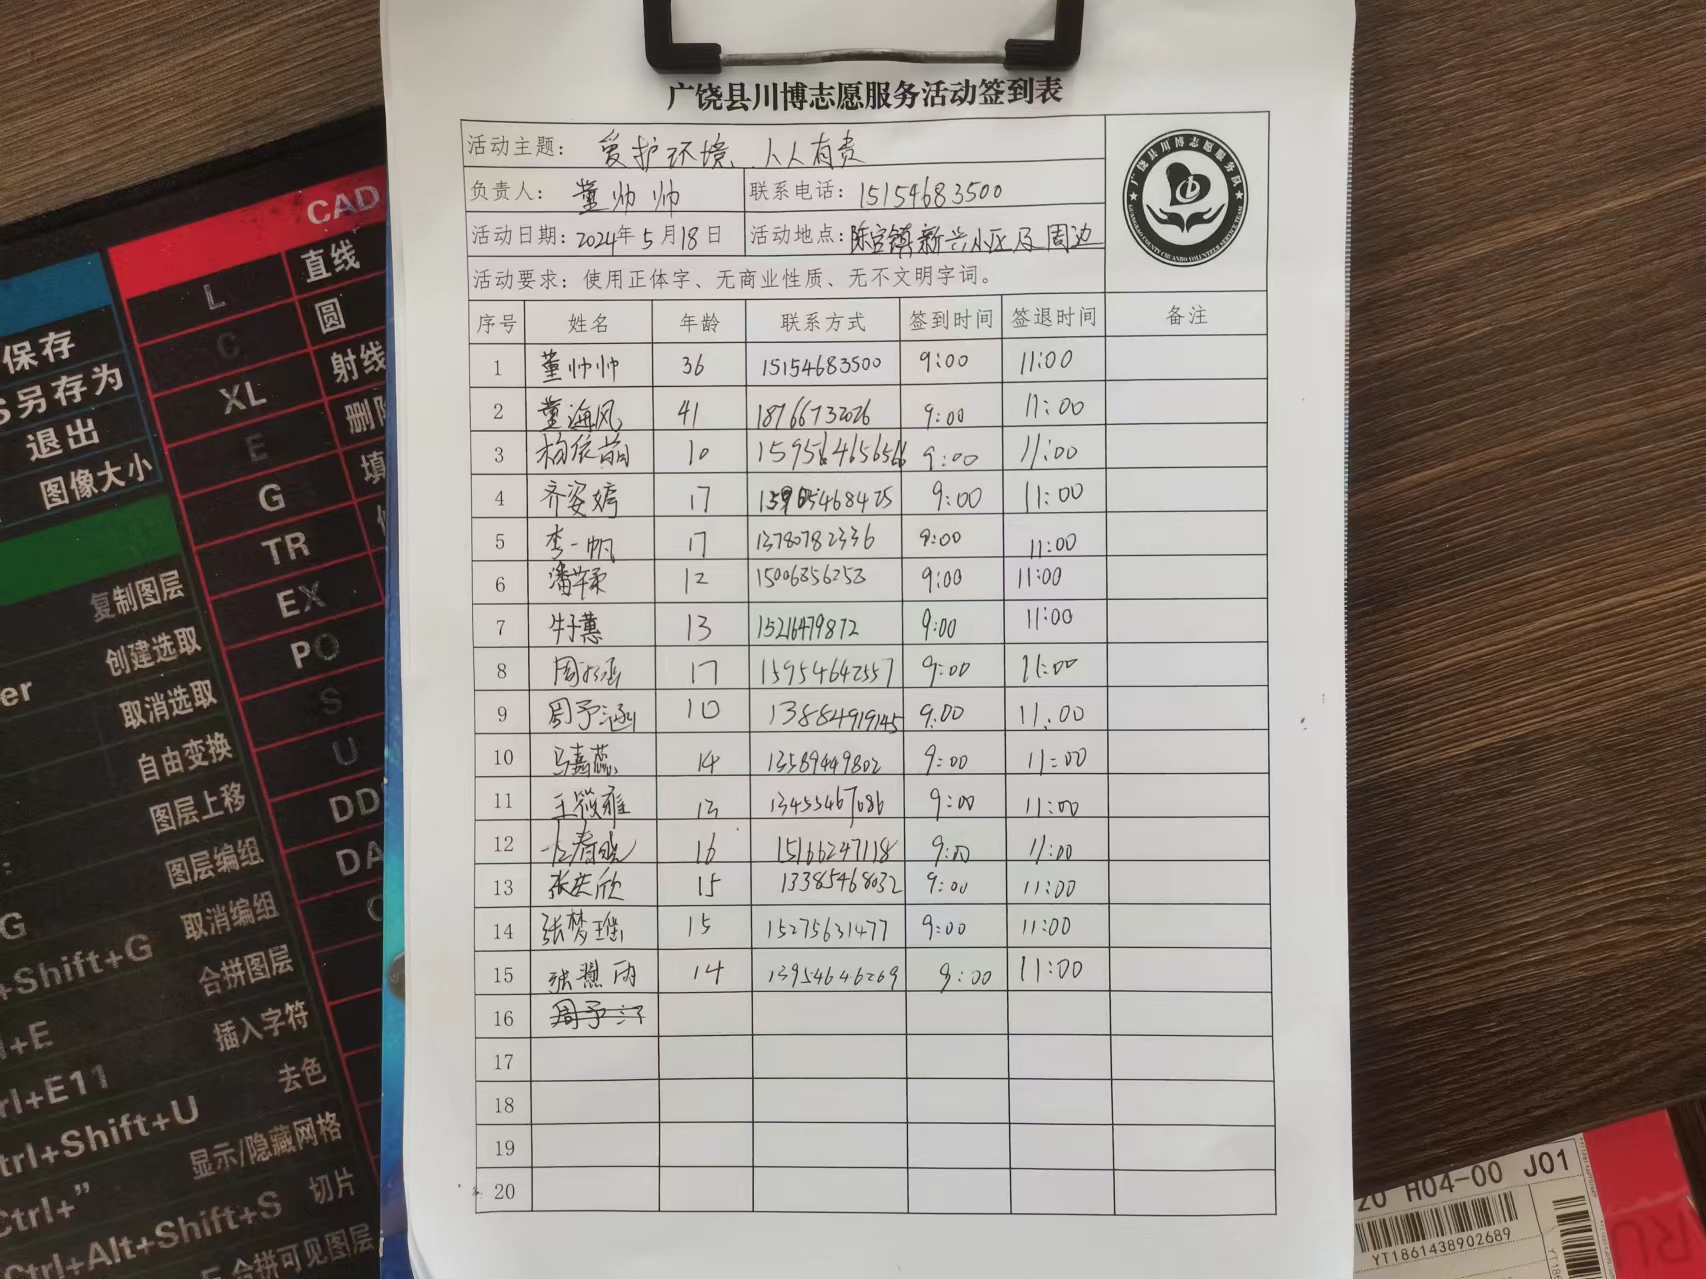 广饶县川博志愿服务活动签到表
活动主题: 爱护环境、人人有责
负责人: 董帅帅 联系电话: 15154683500
活动日期: 2024年 5 月 18 日 活动地点: 陈官镇新兴小区及周边
广饶县川博志愿服务队
活动要求: 使用正体字、无商业性质、无不文明字词。
序号 姓名 年龄 联系方式 签到时间 签退时间 备注
1 董帅帅 36 15154683500 9:00 11:00
2 董海风 41 18766732026 9:00 11:00
3 10 9:00 11:00
4 齐姿婷 17 9:00 11:00
5 李一帆 17 13780782336 9:00 11:00
6 12 15006856253 9:00 11:00
7 13 15216479872 9:00 11:00
8 17 15954642557 9:00 11:00
9 周予涵 10 13884919145 9:00 11:00
10 马嘉蕊 14 13589449802 9:00 11:00
11 王筱雅 13 13455467086 9:00 11:00
12 16 15166247118 9:00 11:00
13 15 13385468032 9:00 11:00
14 张梦瑶 15 15275631477 9:00 11:00
15 14 13954646269 9:00 11:00
16 周予
17
18
19
20
CAD
L 直线
C 圆
XL 射线
E 删除
G
TR
EX
PO
S
U
DA
保存
S另存为
退出
图像大小
复制图层
创建选取
取消选取
自由变换
图层上移
图层编组
+Shift+G 取消编组
合拼图层
插入字符
去色
trl+Shift+U
显示/隐藏网格
Ctrl+” 切片
Ctrl+Alt+Shift+S
合拼可见图层
20 H04-00 J01
YT1861438902689